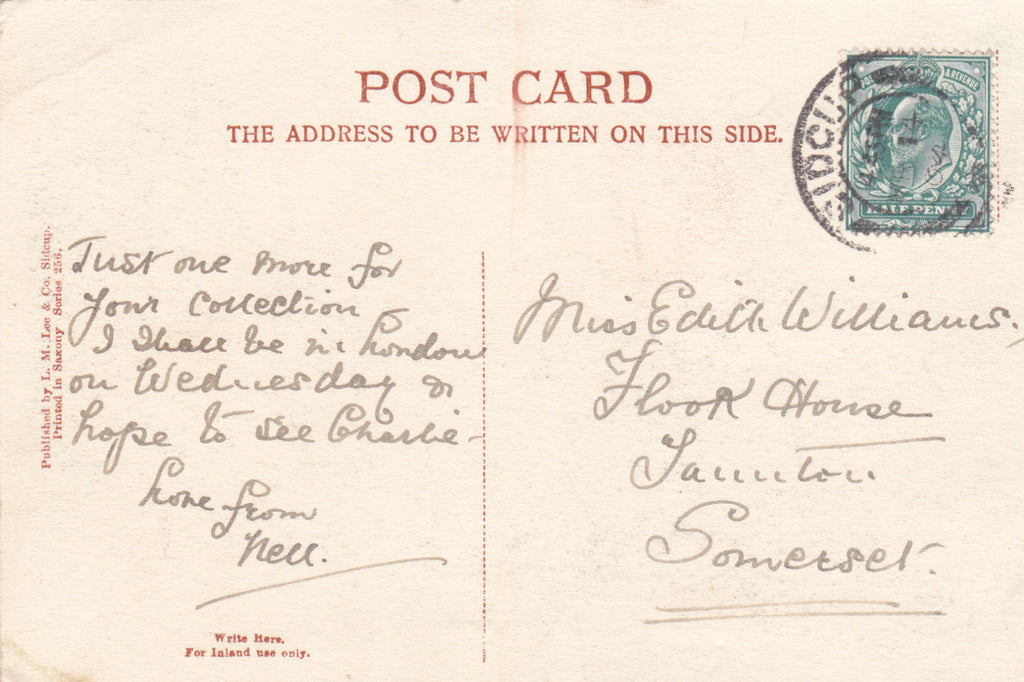 POST CARD
THE ADDRESS TO BE WRITTEN ON THIS SIDE.
SIDCUP
& REVENUE
HALF PENNY
Published by L. M. Lee & Co. Sidcup.
Printed in Saxony Series 256.
Just one more for
your collection
I shall be in London
on Wednesday &
hope to see Charlie
Love from
Nell.
Write Here.
For Inland use only.
Miss Edith Williams.
Flook House
Taunton
Somerset.